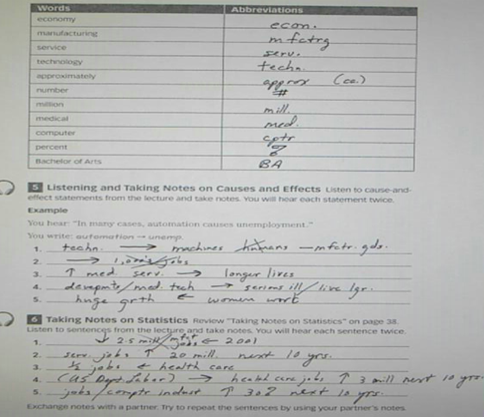 Words Abbreviations
economy econ.
manufacturing mfctrg
service serv.
technology techn.
approximately approx (ca.)
number #
million mill.
medical med.
computer cptr
percent %
Bachelor of Arts BA
5 Listening and Taking Notes on Causes and Effects Listen to cause-and-
effect statements from the lecture and take notes. You will hear each statement twice.
Example
You hear: "In many cases, automation causes unemployment."
You write: automation → unemp.
1. techn. → machines humans — mfctr. gds.
2. → jobs
3. ↑ med serv. → longer lives
4. devepmts/med. tech → serious ill/live lgr.
5. huge grth ← women work
6 Taking Notes on Statistics Review "Taking Notes on Statistics" on page 38.
Listen to sentences from the lecture and take notes. You will hear each sentence twice.
1. ↓ 2.5 mill jobs ← 2001
2. serv. jobs ↑ 20 mill. next 10 yrs.
3. ½ jobs ← health care
4. (US Dept Labor) → health care jobs ↑ 3 mill next 10 yrs.
5. jobs/comptr indust ↑ 30% next 10 yrs.
Exchange notes with a partner. Try to repeat the sentences by using your partner's notes.